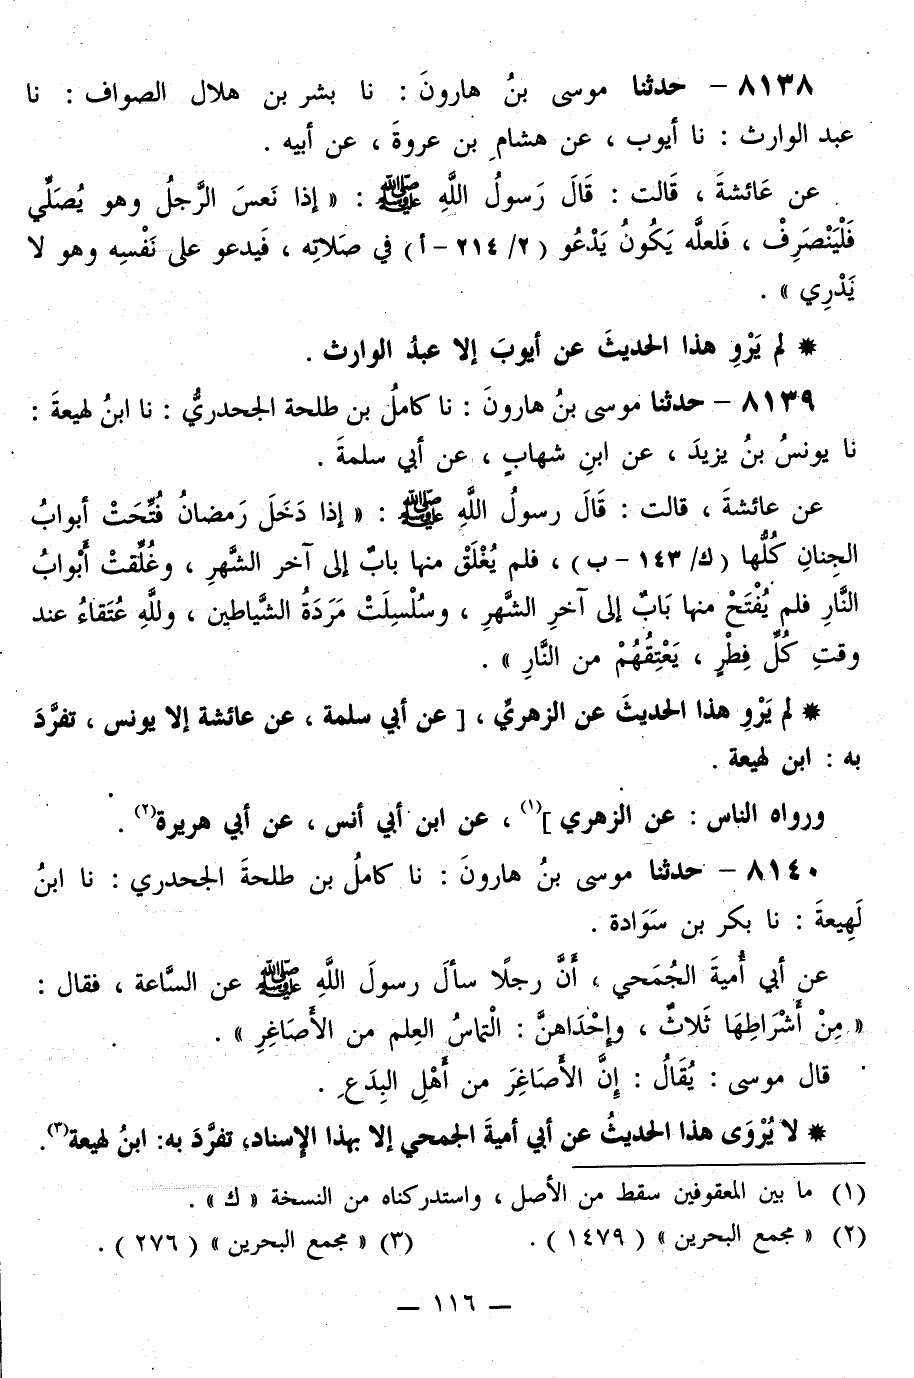 ٨١٣٨ – حدثنا موسى بنُ هارونَ : نا بشر بن هلال الصواف : نا
عبد الوارث : نا أيوب ، عن هشامِ بن عروةَ ، عن أبيه .
عن عَائشةَ ، قَالت : قَالَ رَسولُ اللَّهِ ﷺ : « إذا نَعسَ الرَّجلُ وهو يُصَلِّي
فَلْيَنْصَرِفْ ، فَلعلَّه يَكُونُ يَدْعُو ( ٢/ ٢١٤ – أ ) في صَلاتِه ، فَيدعو على نَفْسِه وهو لا
يَدْرِي » .
* لم يَرْوِ هذا الحديثَ عن أيوبَ إلا عبدُ الوارث .
٨١٣٩ – حدثنا موسى بنُ هارونَ : نا كاملُ بن طلحة الجحدريُّ : نا ابنُ لهيعةَ :
نا يونسُ بنُ يزيدَ ، عن ابنِ شهابٍ ، عن أبي سلمةَ .
عن عائشةَ ، قالت : قَالَ رسولُ اللَّهِ ﷺ : « إذا دَخَلَ رَمضانُ فُتِّحَتْ أبوابُ
الجِنانِ كُلُّها ( ك/ ١٤٣ – ب ) ، فلم يُغْلَقْ منها بابٌ إلى آخر الشَّهرِ ، وغُلِّقتْ أَبْوابُ
النَّارِ فلم يُفْتَحْ منها بَابٌ إلى آخرِ الشَّهرِ ، وسُلْسِلَتْ مَرَدَةُ الشَّياطين ، وللَّهِ عُتَقاءُ عند
وقتِ كُلِّ فِطْرٍ ، يَعْتِقُهُمْ من النَّارِ » .
* لم يَرْوِ هذا الحديثَ عن الزهريِّ ، [ عن أبي سلمة ، عن عائشة إلا يونس ، تفرَّدَ
به : ابن لهيعة .
ورواه الناس : عن الزهري ](١) ، عن ابن أبي أنس ، عن أبي هريرة(٢) .
٨١٤٠ – حدثنا موسى بنُ هارونَ : نا كاملُ بن طلحةَ الجحدري : نا ابنُ
لَهِيعةَ : نا بكر بن سَوَادة .
عن أبي أُميةَ الجُمَحي ، أَنَّ رجلًا سألَ رسولَ اللَّهِ ﷺ عن السَّاعة ، فقال :
« مِنْ أَشْرَاطِهَا ثَلاثٌ ، وإِحْدَاهنَّ : الْتماسُ العِلم من الأَصَاغِرِ » .
قال موسى : يُقَالُ : إِنَّ الأَصَاغِرَ من أَهْلِ البِدَعِ .
* لا يُرْوَى هذا الحديثُ عن أبي أميةَ الجمحي إلا بهذا الإسناد، تفرَّدَ به: ابنُ لهيعة(٣).
(١) ما بين المعقوفين سقط من الأصل ، واستدركناه من النسخة « ك » .
(٢) « مجمع البحرين » ( ١٤٧٩ ) . (٣) « مجمع البحرين » ( ٢٧٦ ) .
— ١١٦ —